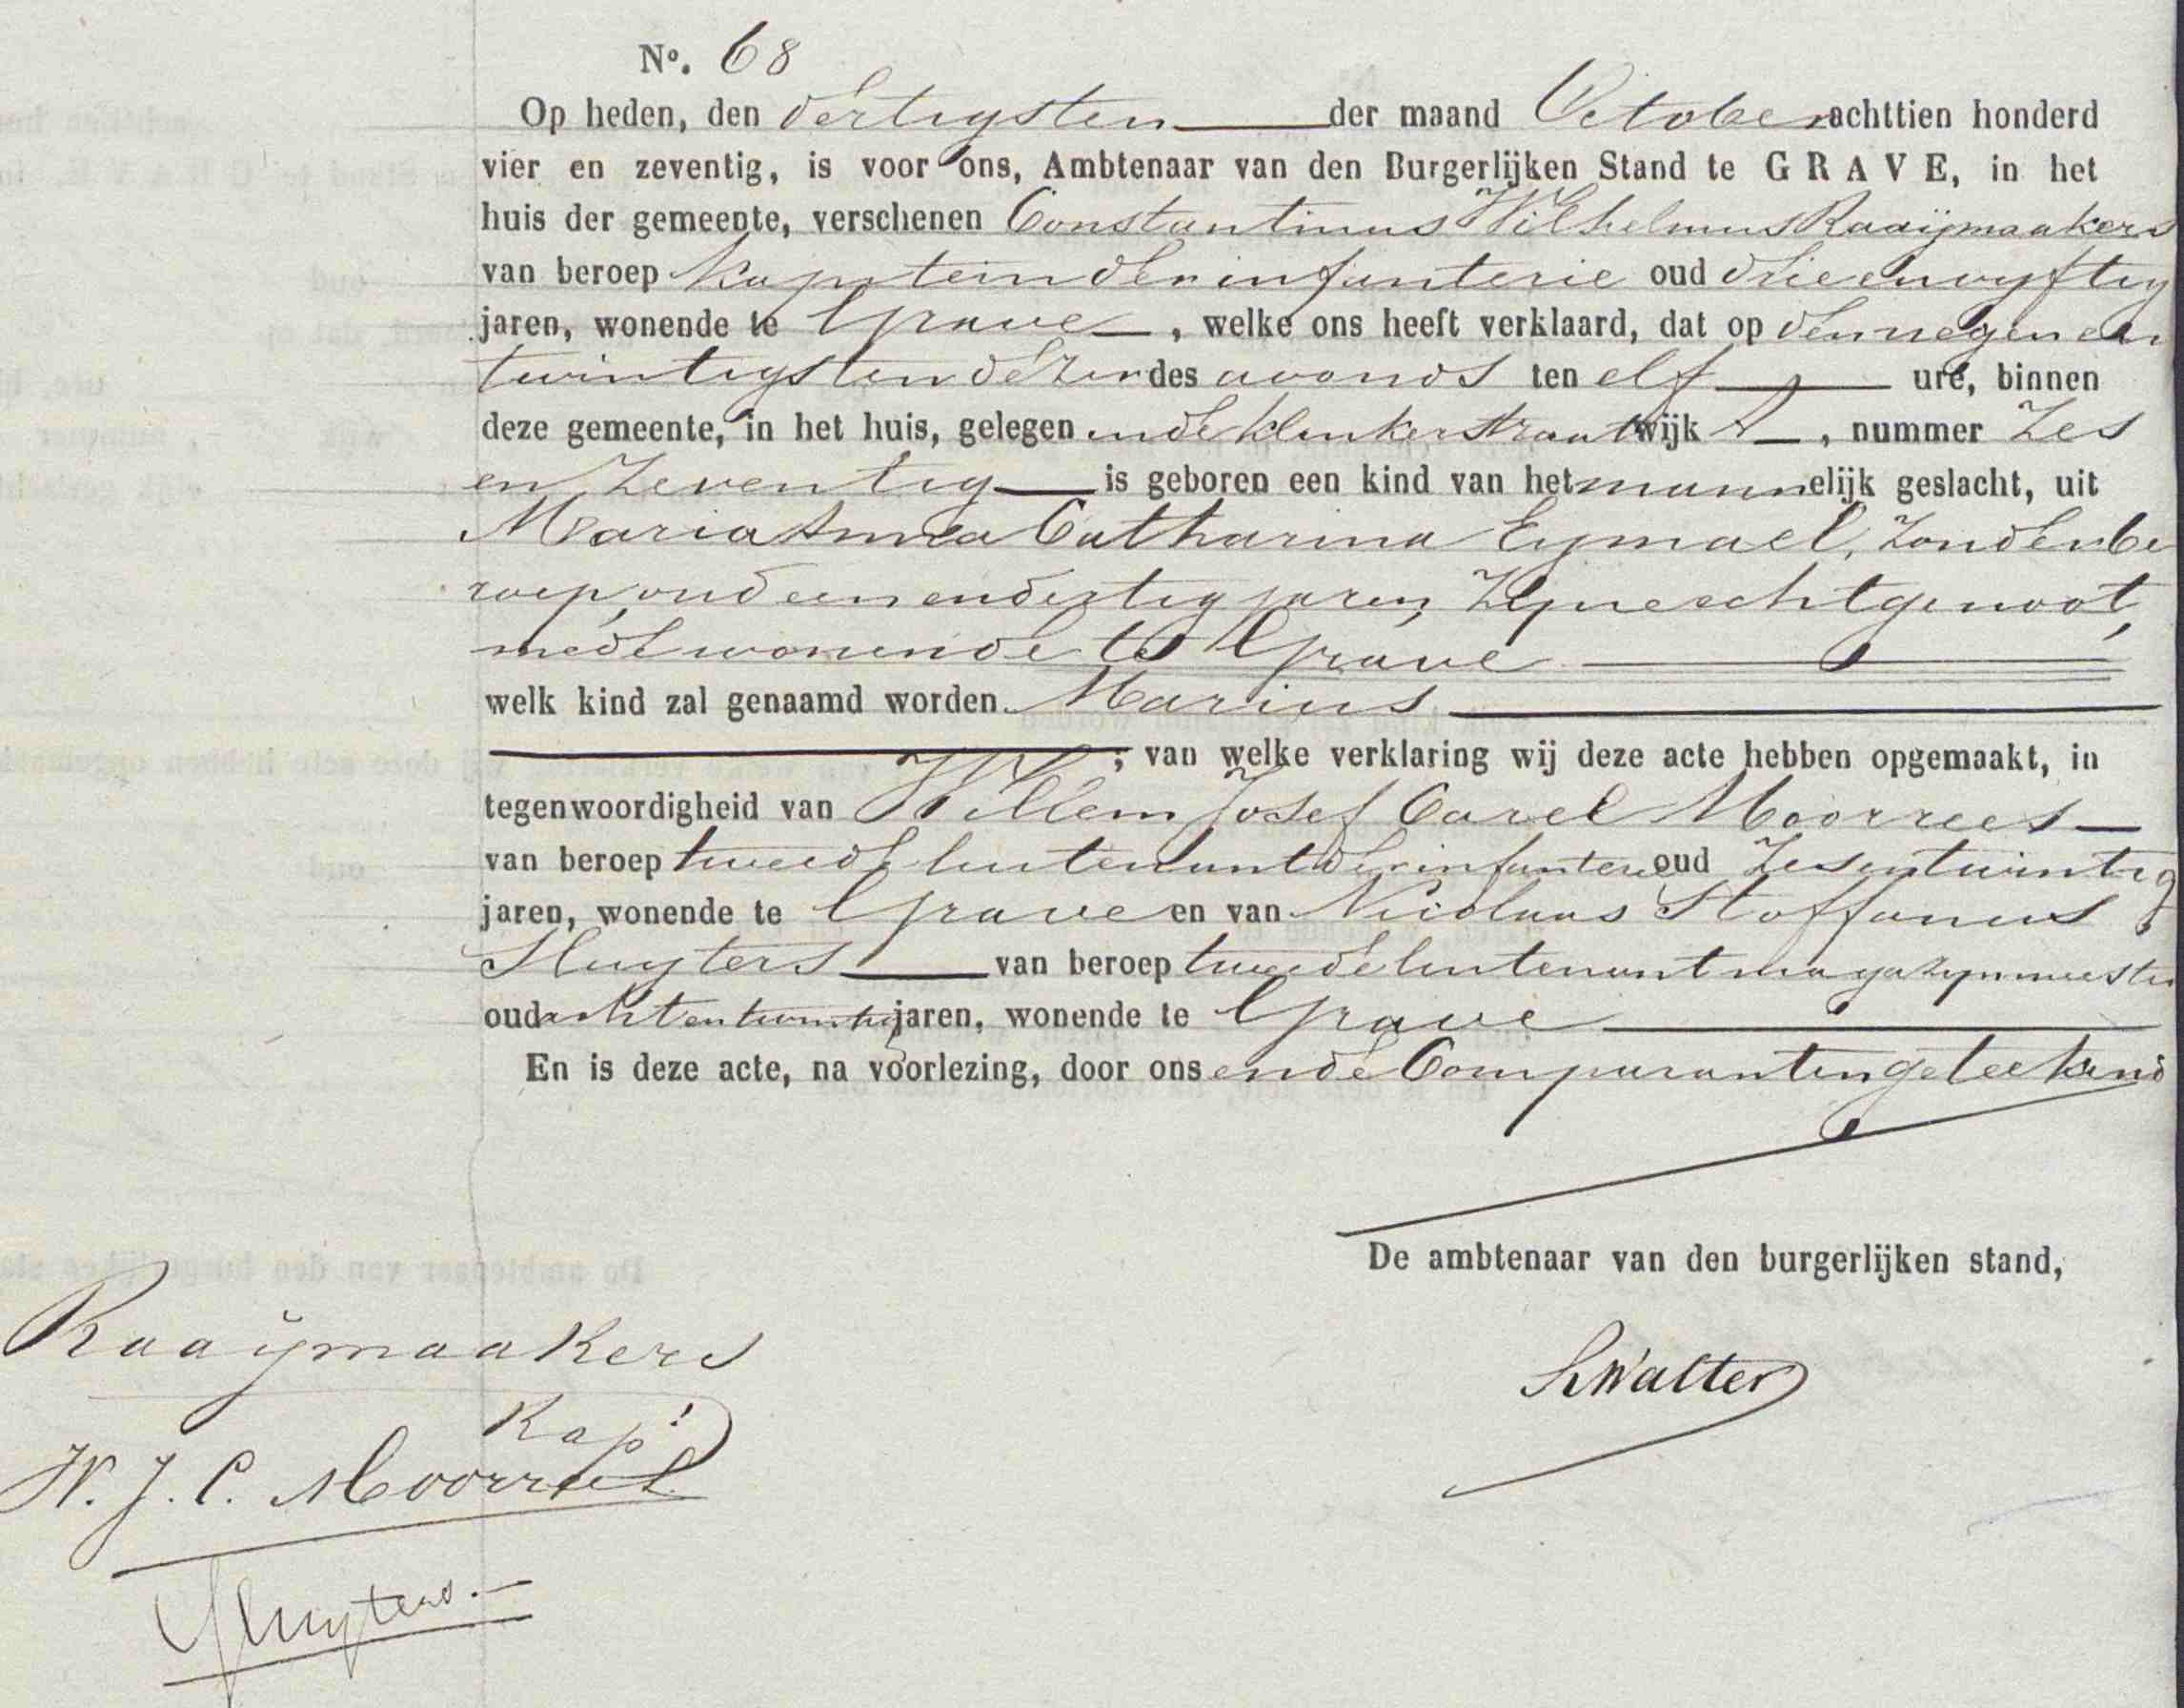 Nº. 68
Op heden, den dertigsten der maand October achttien honderd
vier en zeventig, is voor ons, Ambtenaar van den Burgerlijken Stand te GRAVE, in het
huis der gemeente, verschenen Constantinus Wilhelmus Raaijmaakers
van beroep kapitein der infanterie oud drie en vyftig
jaren, wonende te Grave, welke ons heeft verklaard, dat op den negen en
twintigsten dezer des avonds ten elf ure, binnen
deze gemeente, in het huis, gelegen in de klinkerstraat wijk A, nummer zes
en zeventig is geboren een kind van het mannelijk geslacht, uit
Maria Anna Catharina Eymael, zonder be
roep, oud een en dertig jaren, zyne echtgenoot,
mede wonende te Grave
welk kind zal genaamd worden Marius
; van welke verklaring wij deze acte hebben opgemaakt, in
tegenwoordigheid van Willem Josef Carel Moorrees
van beroep tweede luitenant der infanterie oud zes en twintig
jaren, wonende te Grave en van Nicolaas Stoffanus
Sluyters van beroep tweede luitenant magazynmeester
oud acht en twintig jaren, wonende te Grave
En is deze acte, na voorlezing, door ons en de Comparanten geteekend
De ambtenaar van den burgerlijken stand,
Raaymaakers
Walter
Kap:
W. J. C. Moorrees
Sluyters.